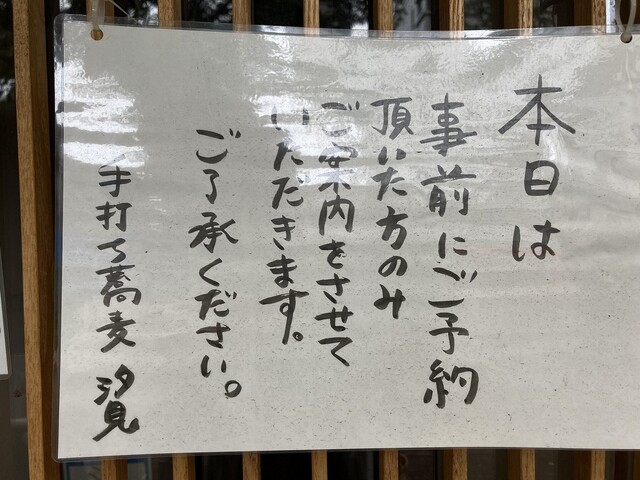 本日は
事前にご予約
頂いた方のみ
ご案内をさせて
いただきます。
ご了承ください。
手打ち蕎麦 汐見